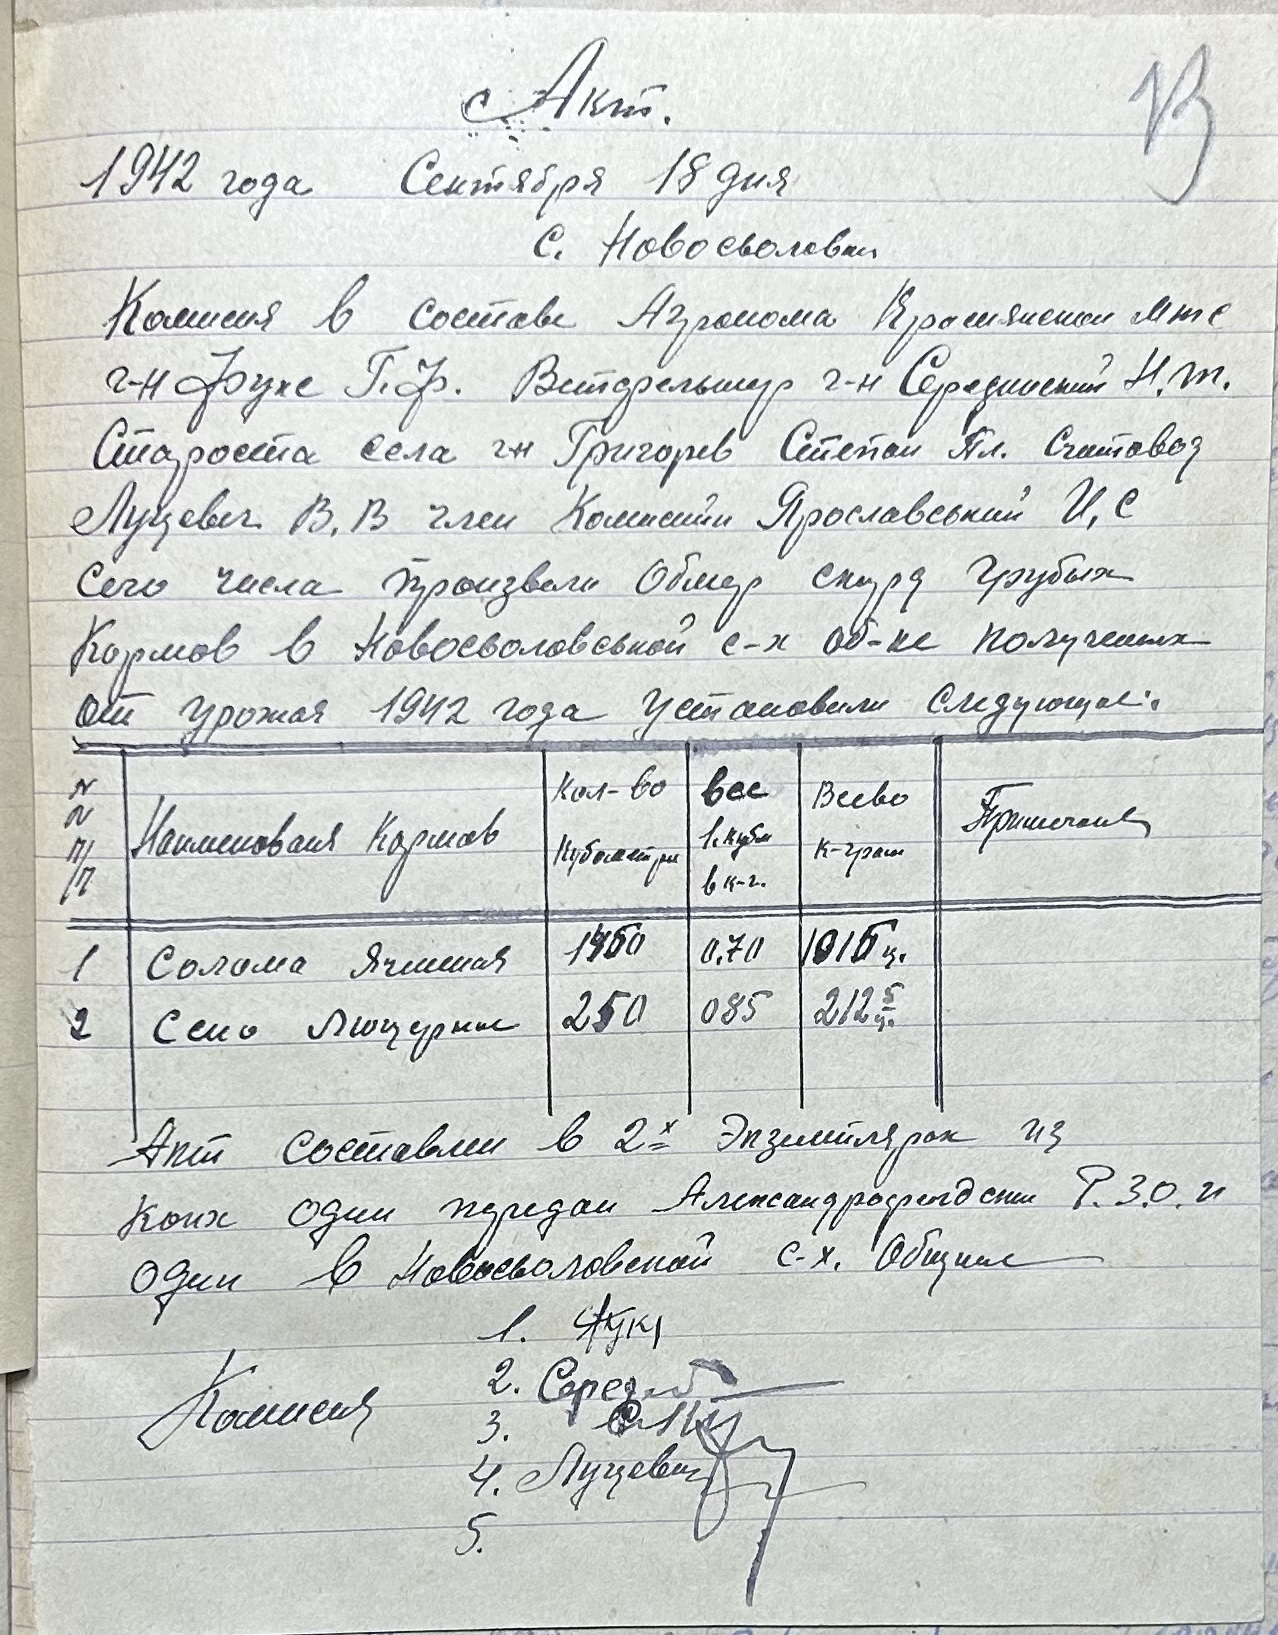 Акт.
1942 года Сентября 18 дня
С. Новосьоловки
Комисия в составе Агронома Краснянской мтс
г-н Фукс Г.Ф. Ветфельшер г-н Серединский Н.т.
Староста села г-н Григорев Степан Пл. Счетовод
Луцевич В.В член Комисии Ярославський И,С
Сего числа произвели Обмер скирд грубых
Кормов в Новосьоловськой с-х об-не полученых
от урожая 1942 года установили следующее:
N N п/п Наименования Кормов Кол-во Кубометри вес 1. кубм в к-г. Всево к-грам Примечания
1 Солома Ячменая 1450 0.70 1015 ц.
2 Сено Люцерные 250 085 212 5 ц.
Акт составлен в 2х Экземплярах из
коих один передан Александрофельдским Р.З.О. и
один в Новосьоловской с-х. Общине
1. Фукс
Комисия 2. Серед
3.
4. Луцевич
5.